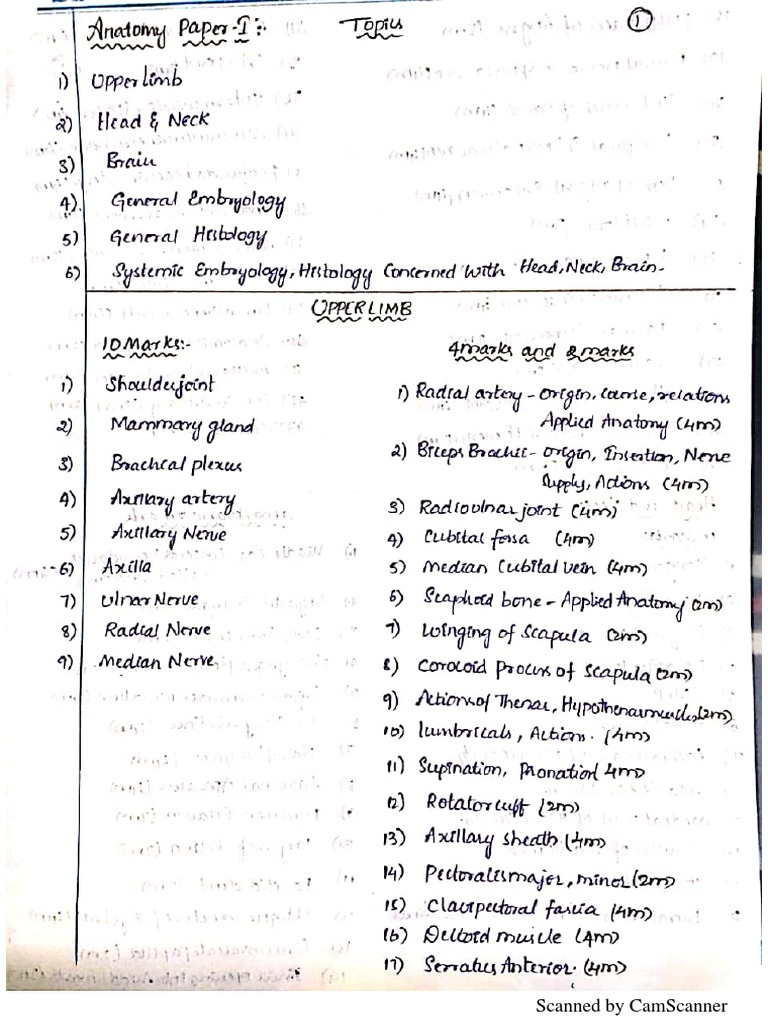 Anatomy Paper-I:- Topics 1
1) Upper limb
2) Head & Neck
3) Brain
4) General Embryology
5) General Histology
6) Systemic Embryology, Histology Concerned with Head, Neck, Brain.
UPPER LIMB
10 Marks:-
1) Shoulder joint
2) Mammary gland
3) Brachial plexus
4) Axillary artery
5) Axillary Nerve
6) Axilla
7) Ulnar Nerve
8) Radial Nerve
9) Median Nerve
4marks and 2marks
1) Radial artery - Origin, Course, relations
Applied Anatomy (4m)
2) Biceps Brachii - Origin, Insertion, Nerve
Supply, Actions (4m)
3) Radioulnar joint (4m)
4) Cubital fossa (4m)
5) Median Cubital vein (4m)
6) Scaphoid bone - Applied Anatomy (2m)
7) Winging of Scapula (2m)
8) Coracoid Process of Scapula (2m)
9) Actions of Thenar, Hypothenar muscles (2m)
10) Lumbricals, Actions. (4m)
11) Supination, Pronation 4m)
12) Rotator cuff (2m)
13) Axillary sheath (4m)
14) Pectoralis major, minor (2m)
15) Clavipectoral fascia (4m)
16) Deltoid muscle (4m)
17) Serratus Anterior. (4m)
Scanned by CamScanner